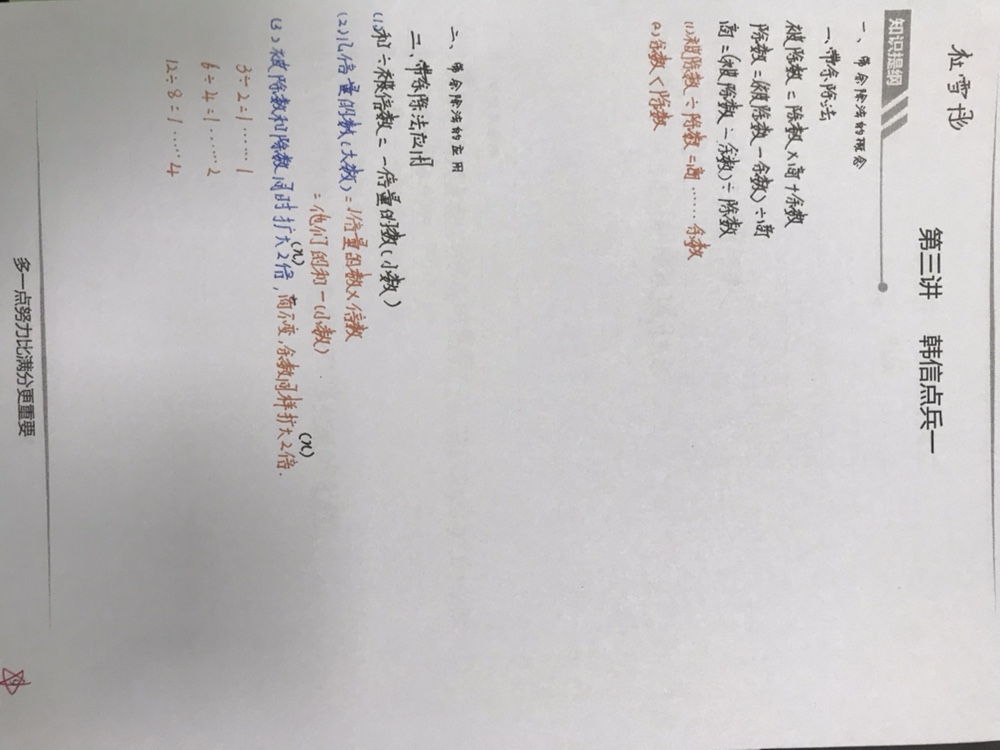 杜雪彤
第三讲 韩信点兵一
知识提纲
一、带余除法的概念
一、带余除法
被除数=除数×商+余数
除数=(被除数-余数)÷商
商=(被除数-余数)÷除数
(1)被除数÷除数=商……余数
(2)余数<除数
二、带余除法的应用
二、带余除法应用
(1)和÷被倍数=一倍量的数(小数)
(2)几倍量的数(大数)=1倍量的数×倍数
=他们的和-(小数)
(3)被除数和除数同时扩大2倍(x),商不变,余数同样扩大2倍(x).
3÷2=1……1
6÷4=1……2
12÷8=1……4
多一点努力比满分更重要